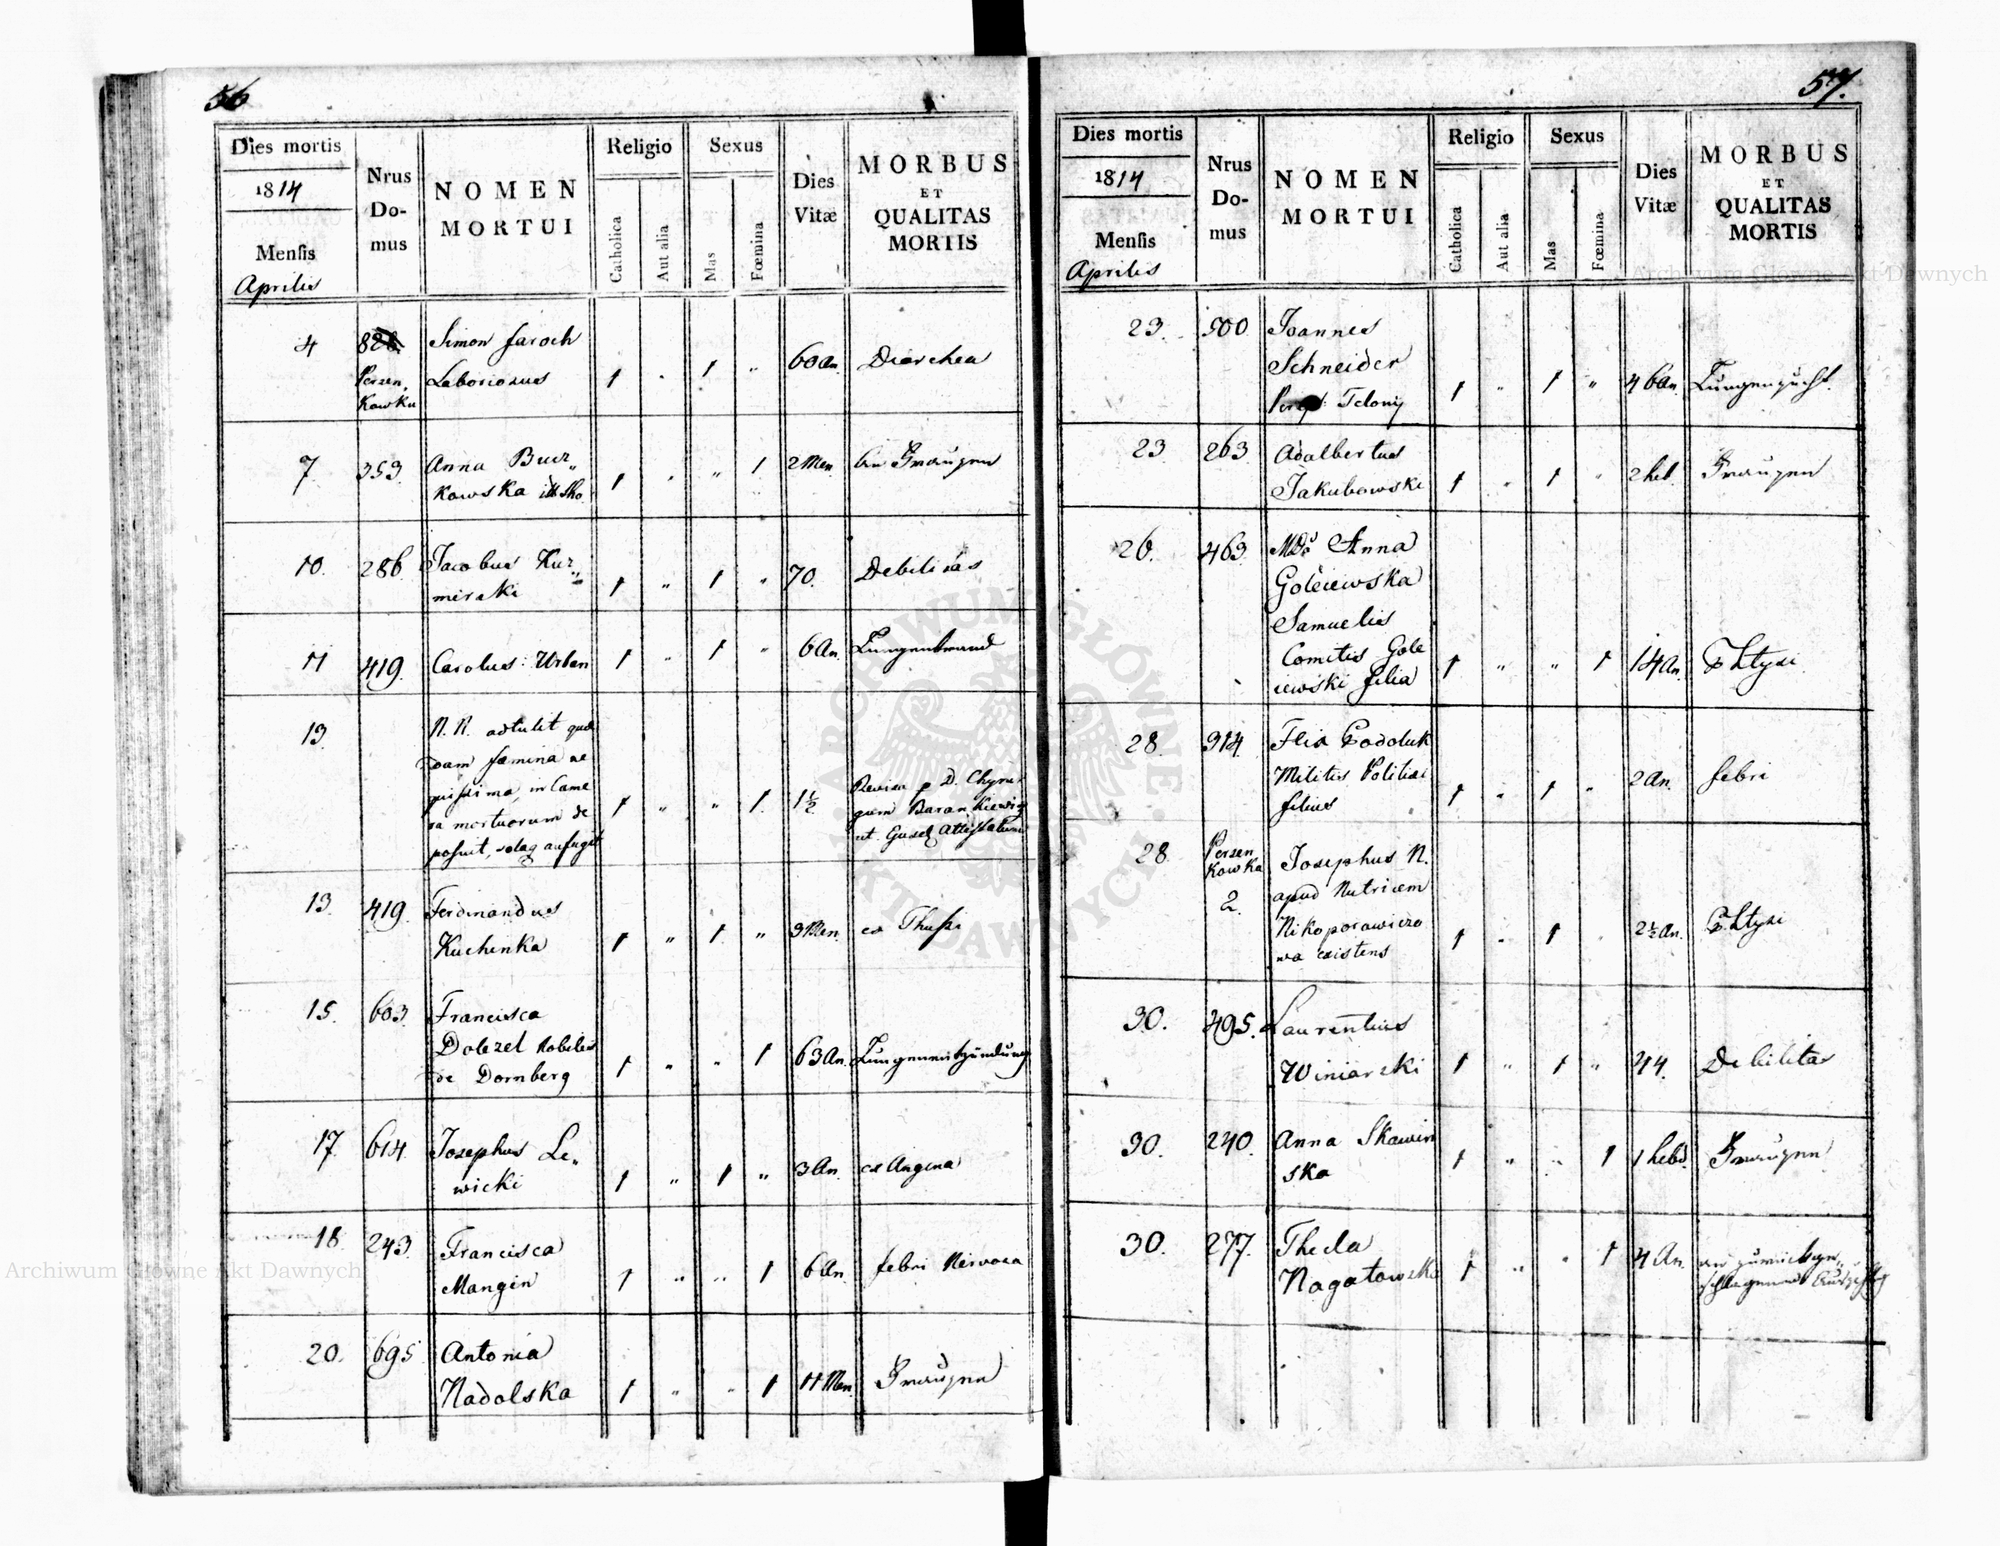 56
Dies mortis
1814
Mensis
Aprilis
Nrus
Do-
mus
NOMEN
MORTUI
Religio
Catholica
Aut alia
Sexus
Mas
Fœmina
Dies
Vitæ
MORBUS
ET
QUALITAS
MORTIS
4
Persen,
kowka
Simon Jaroch
Laboriosus
1 . 1 "
60 an.
Diarhea
7
353
Anna Burz,,
kowska
1 . " 1
2 Men
an Fraiszen
10.
286.
Jacobus Kur,,
mirski
1 " 1 "
70.
Debilitas
11
419.
Carolus Urban
1 " 1 "
6 An.
Lungenbrand
13.
N. N. adtulit quæ
dam fæmina ne
quissima, in Came
ra mortuorum de
posuit, solaq aufugit
1 " " 1.
1½
Revisu p D. Chyrur
gum Barankiewicz
ut Attestatum
13.
419.
Ferdinandus
Kuchinka
1 " 1 "
3 Men.
ex Thussi
15.
603.
Francisca
Dolezel Nobilis
de Dornberg
1 " " 1
63 An.
Lungenentzündung
17.
614.
Josephus Le,,
wicki
1 " 1 "
3 An.
ex Angina
18.
243.
Francisca
Mangin
1 " " 1
6 An.
febri Nervosa
20.
695
Antonia
Nadolska
1 " " 1
11 Men.
Fraiszen
57.
Dies mortis
1814
Mensis
Aprilis
Nrus
Do-
mus
NOMEN
MORTUI
Religio
Catholica
Aut alia
Sexus
Mas
Fœmina
Dies
Vitæ
MORBUS
ET
QUALITAS
MORTIS
23.
500
Joannes
Schneider
Telonij
1 " 1 "
46 an.
Lungensucht.
23
263.
Adalbertus
Jakubowski
1 " 1 "
2 heb.
Fraiszen
26.
463.
Anna
Goleiewska
Samuelis
Comitis Gole
iewski filia
1 " " 1
14 An.
Phtysi
28.
314.
Elia Podoluk
Militis Politiæ
filius
1 " 1 "
2 An.
febri
28
Persen
kowka
2.
Josephus N.
apud Nutricem
Nikoporawiczo
wa existens
1 " 1 .
2½ An.
Phtysi
30.
495.
Laurentius
Winiarski
1 " 1 "
44.
Debilitas
30.
240.
Anna Skawin
ska
1 " " 1
1 hebd.
Fraiszen
30.
277.
Thecla
Nagatowska
1 " " 1
4 An.
an zurückge,,
schlagenen
Archiwum Główne Akt Dawnych
Archiwum Główne Akt Dawnych
ARCHIWUM GŁÓWNE AKT DAWNYCH